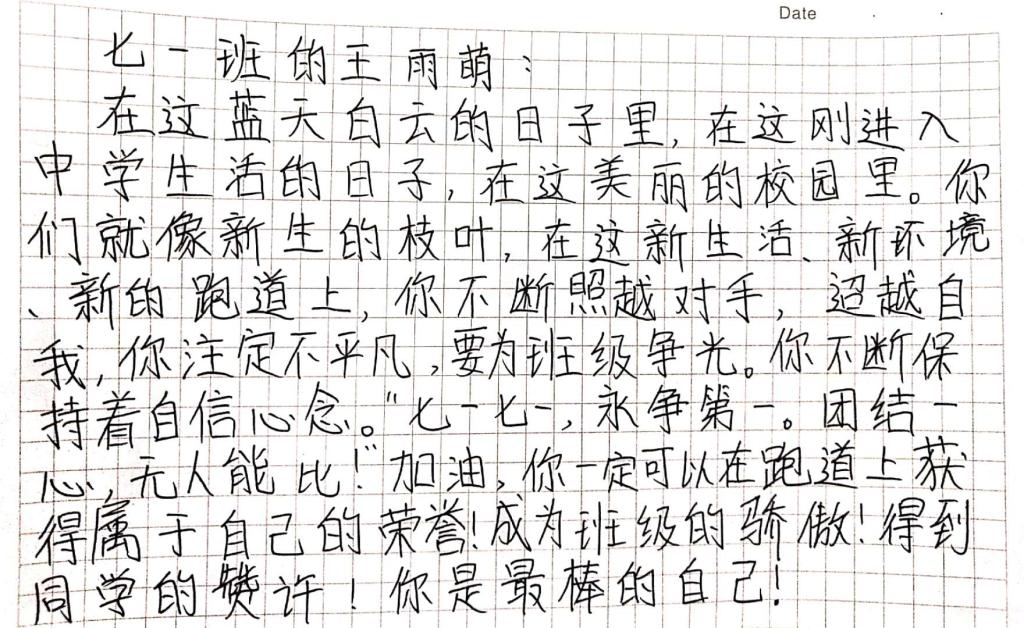 Date
七一班的王雨萌：
在这蓝天白云的日子里，在这刚进入
中学生活的日子，在这美丽的校园里。你
们就像新生的枝叶，在这新生活、新环境
、新的跑道上，你不断照越对手，迢越自
我，你注定不平凡，要为班级争光。你不断保
持着自信心念。“七一七一，永争第一。团结一
心，无人能比！”加油，你一定可以在跑道上获
得属于自己的荣誉！成为班级的骄傲！得到
同学的赞许！你是最棒的自己！